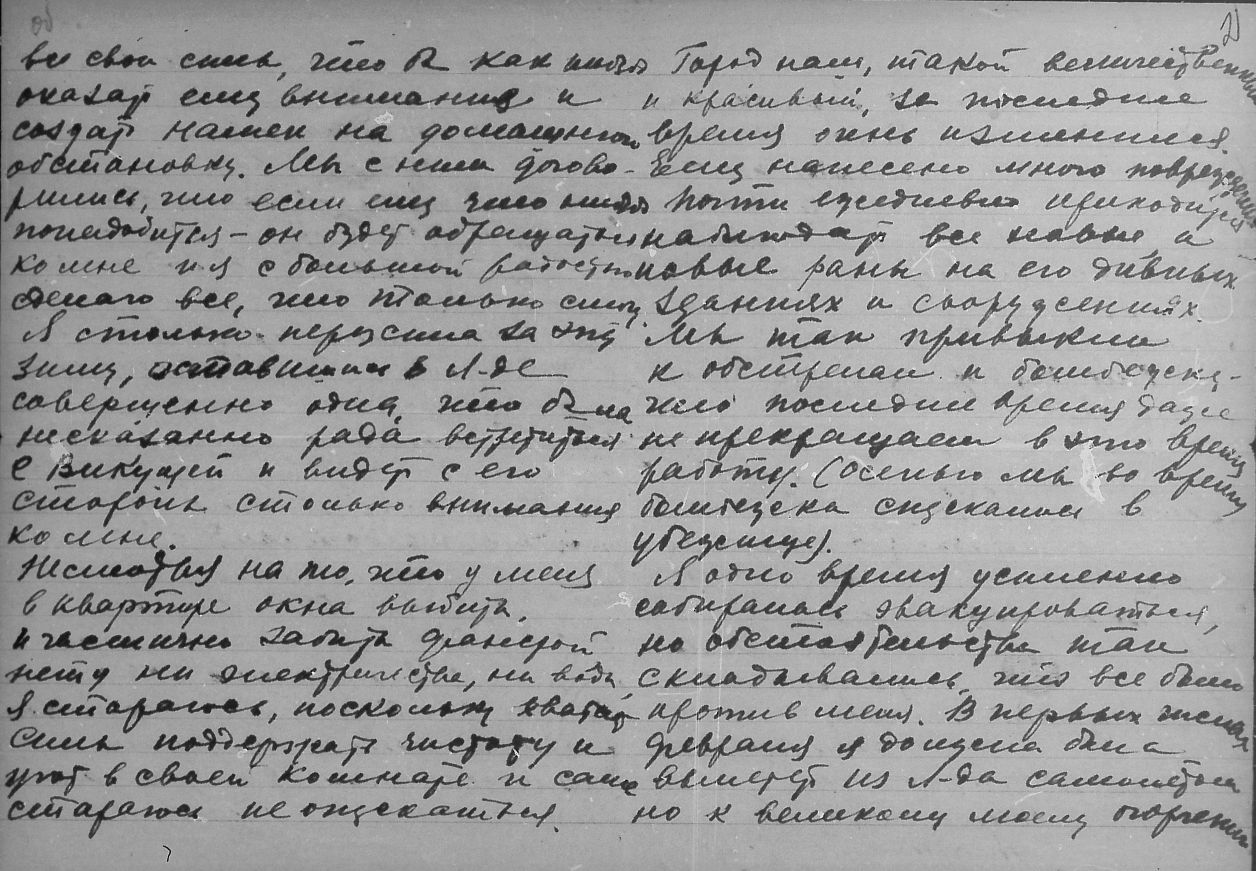 об
все свои силы, чтоб как нибудь
оказать ему внимание и
создать намек на домашнюю
обстановку. Мы с ним догово-
рились, что если ему что нибудь
понадобится – он будет обращаться
ко мне и я с большой радостью
сделаю все, что только смогу.
Я столько пережила за эту
зиму, оставшись в Л-де
совершенно одна, что была
несказанно рада встретиться
с Викущей и видеть с его
стороны столько внимания
ко мне.
Несмотря на то, что у меня
в квартире окна выбиты,
и частично забиты фанерой
нету ни электричества, ни воды,
я стараюсь, поскольку хватает
силы поддержать чистоту и
уют в своей комнате и сама
стараюсь не опускаться.
21
Город наш, такой величественный
и красивый, за последнее
время очень изменился.
Ему нанесено много повреждений
Почти ежедневно приходится
наблюдать все новые и
новые раны на его дивных
зданиях и сооружениях.
Мы так привыкли
к обстрелам и бомбежке,-
что последнее время даже
не прекращаем в это время
работу. (Осенью мы во время
бомбежки спускались в
убежище).
Я одно время усиленно
собиралась эвакуироваться,
но обстоятельства так
складывались, что все было
против меня. В первых числах
февраля я должна была
вылететь из Л-да самолетом
но к великому моему огорчению